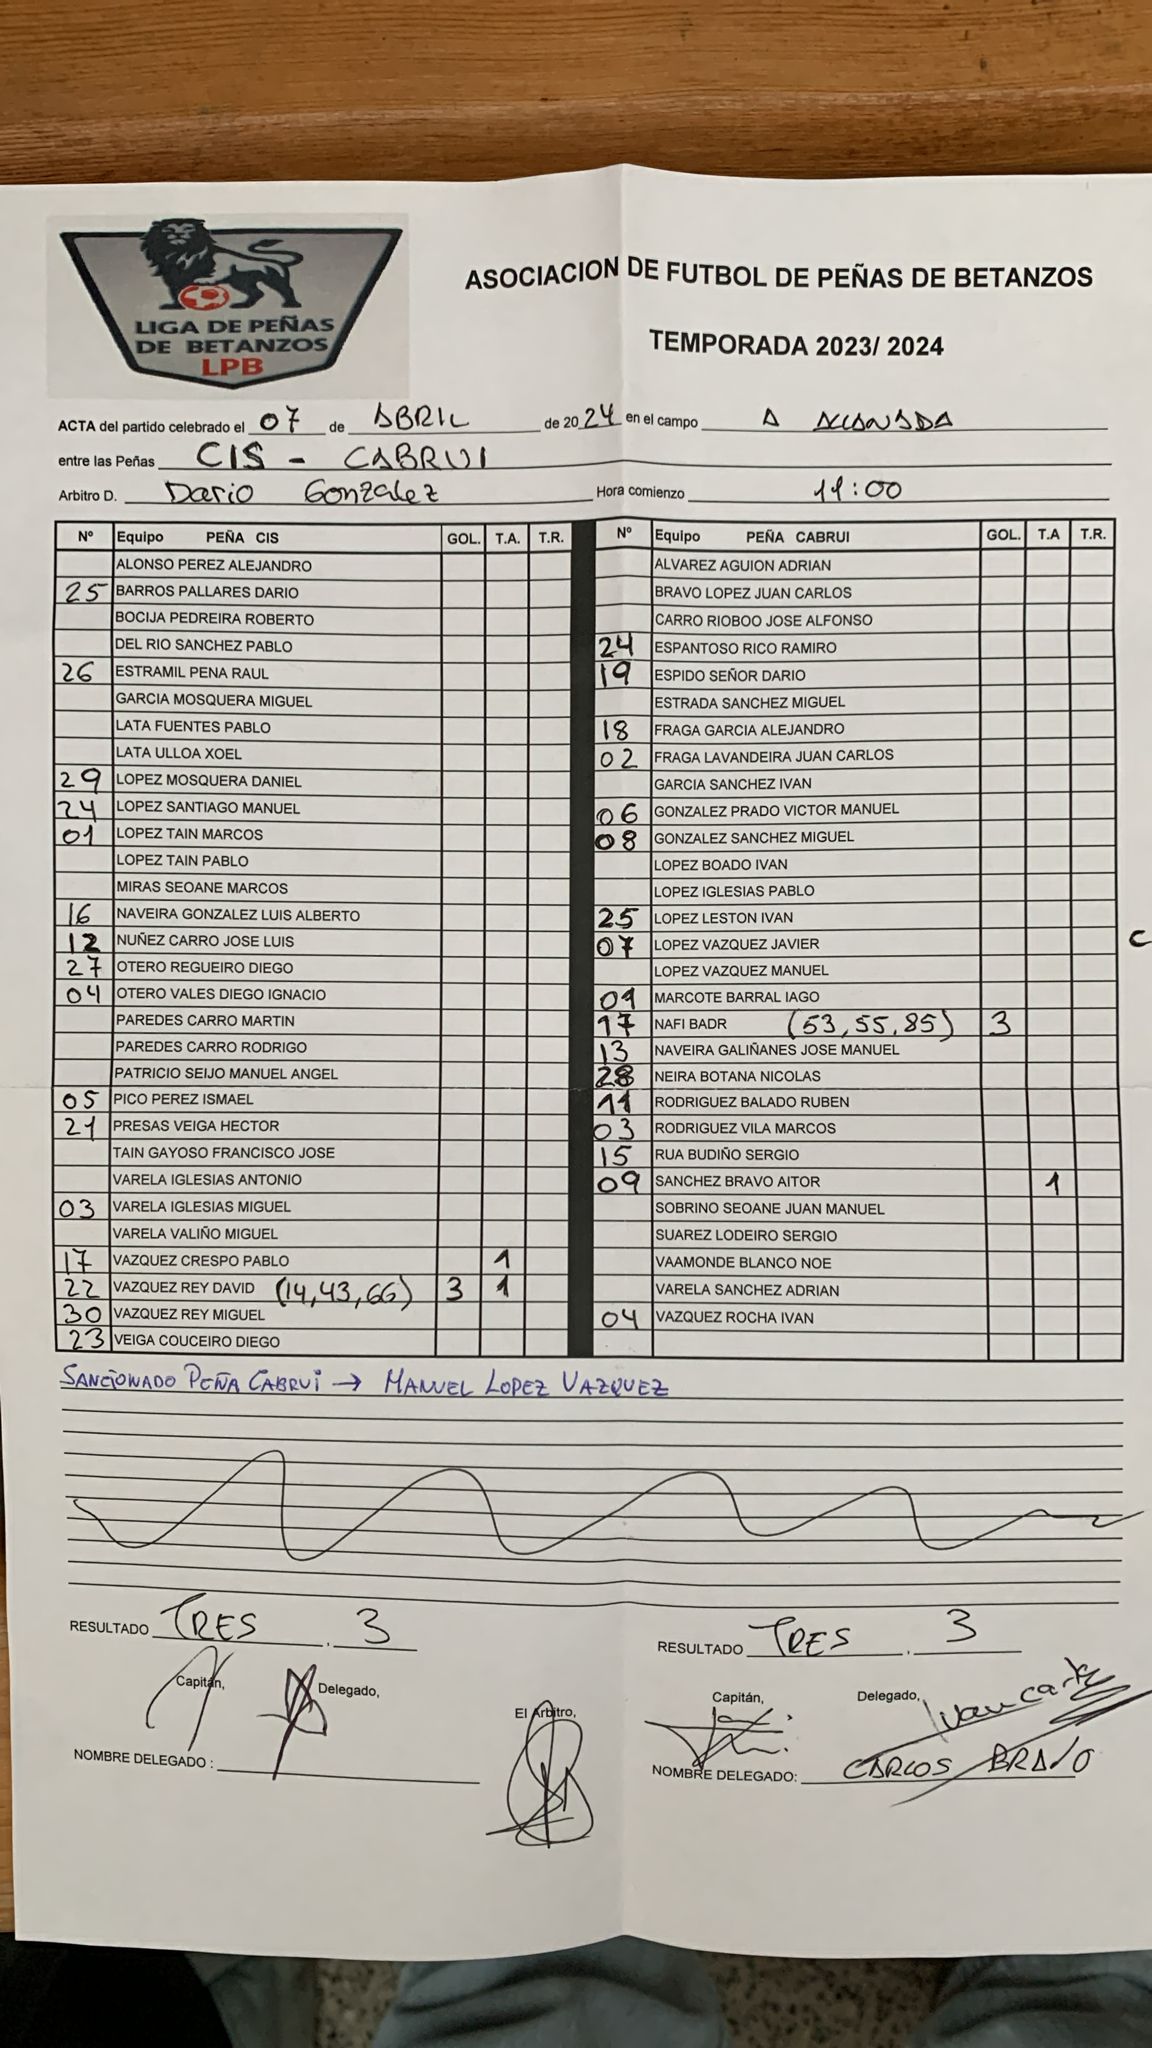 LIGA DE PEÑAS
DE BETANZOS
LPB
ASOCIACION DE FUTBOL DE PEÑAS DE BETANZOS
TEMPORADA 2023/ 2024
ACTA del partido celebrado el 07 de ABRIL de 2024 en el campo A
entre las Peñas CIS - CABRUI
Arbitro D. Dario Gonzalez Hora comienzo 11:00
Nº Equipo PEÑA CIS GOL. T.A. T.R. Nº Equipo PEÑA CABRUI GOL. T.A T.R.
ALONSO PEREZ ALEJANDRO ALVAREZ AGUION ADRIAN
25 BARROS PALLARES DARIO BRAVO LOPEZ JUAN CARLOS
BOCIJA PEDREIRA ROBERTO CARRO RIOBOO JOSE ALFONSO
DEL RIO SANCHEZ PABLO 24 ESPANTOSO RICO RAMIRO
26 ESTRAMIL PENA RAUL 19 ESPIDO SEÑOR DARIO
GARCIA MOSQUERA MIGUEL ESTRADA SANCHEZ MIGUEL
LATA FUENTES PABLO 18 FRAGA GARCIA ALEJANDRO
LATA ULLOA XOEL 02 FRAGA LAVANDEIRA JUAN CARLOS
29 LOPEZ MOSQUERA DANIEL GARCIA SANCHEZ IVAN
24 LOPEZ SANTIAGO MANUEL 06 GONZALEZ PRADO VICTOR MANUEL
01 LOPEZ TAIN MARCOS 08 GONZALEZ SANCHEZ MIGUEL
LOPEZ TAIN PABLO LOPEZ BOADO IVAN
MIRAS SEOANE MARCOS LOPEZ IGLESIAS PABLO
16 NAVEIRA GONZALEZ LUIS ALBERTO 25 LOPEZ LESTON IVAN
12 NUÑEZ CARRO JOSE LUIS 07 LOPEZ VAZQUEZ JAVIER C
27 OTERO REGUEIRO DIEGO LOPEZ VAZQUEZ MANUEL
04 OTERO VALES DIEGO IGNACIO 01 MARCOTE BARRAL IAGO
PAREDES CARRO MARTIN 17 NAFI BADR (53,55,85) 3
PAREDES CARRO RODRIGO 13 NAVEIRA GALIÑANES JOSE MANUEL
PATRICIO SEIJO MANUEL ANGEL 28 NEIRA BOTANA NICOLAS
05 PICO PEREZ ISMAEL 11 RODRIGUEZ BALADO RUBEN
21 PRESAS VEIGA HECTOR 03 RODRIGUEZ VILA MARCOS
TAIN GAYOSO FRANCISCO JOSE 15 RUA BUDIÑO SERGIO
VARELA IGLESIAS ANTONIO 09 SANCHEZ BRAVO AITOR 1
03 VARELA IGLESIAS MIGUEL SOBRINO SEOANE JUAN MANUEL
VARELA VALIÑO MIGUEL SUAREZ LODEIRO SERGIO
17 VAZQUEZ CRESPO PABLO 1 VAAMONDE BLANCO NOE
22 VAZQUEZ REY DAVID (14,43,66) 3 1 VARELA SANCHEZ ADRIAN
30 VAZQUEZ REY MIGUEL 04 VAZQUEZ ROCHA IVAN
23 VEIGA COUCEIRO DIEGO
SANCIONADO PEÑA CABRUI → MANUEL LOPEZ VAZQUEZ
RESULTADO TRES . 3 RESULTADO TRES . 3
Capitán, Delegado, El Arbitro, Capitán, Delegado,
NOMBRE DELEGADO : NOMBRE DELEGADO: CARLOS BRAVO